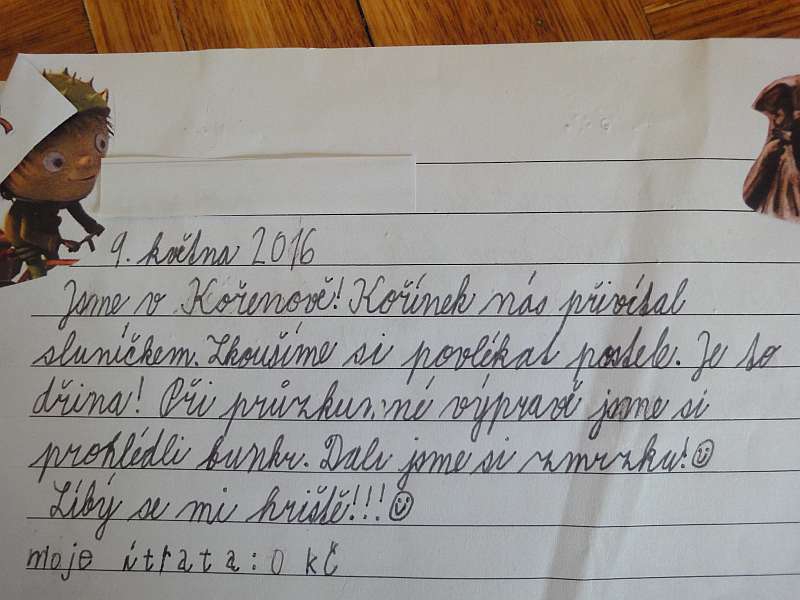 9. května 2016
Jsme v Kořenově! Kořínek nás přivítal
sluníčkem. Zkoušíme si povlékat postele. Je to
dřina! Při průzkumné výpravě jsme si
prohlédli bunkr. Dali jsme si zmrzku!☺
Líbý se mi hriště!!!☺
moje ítrata: 0 kč